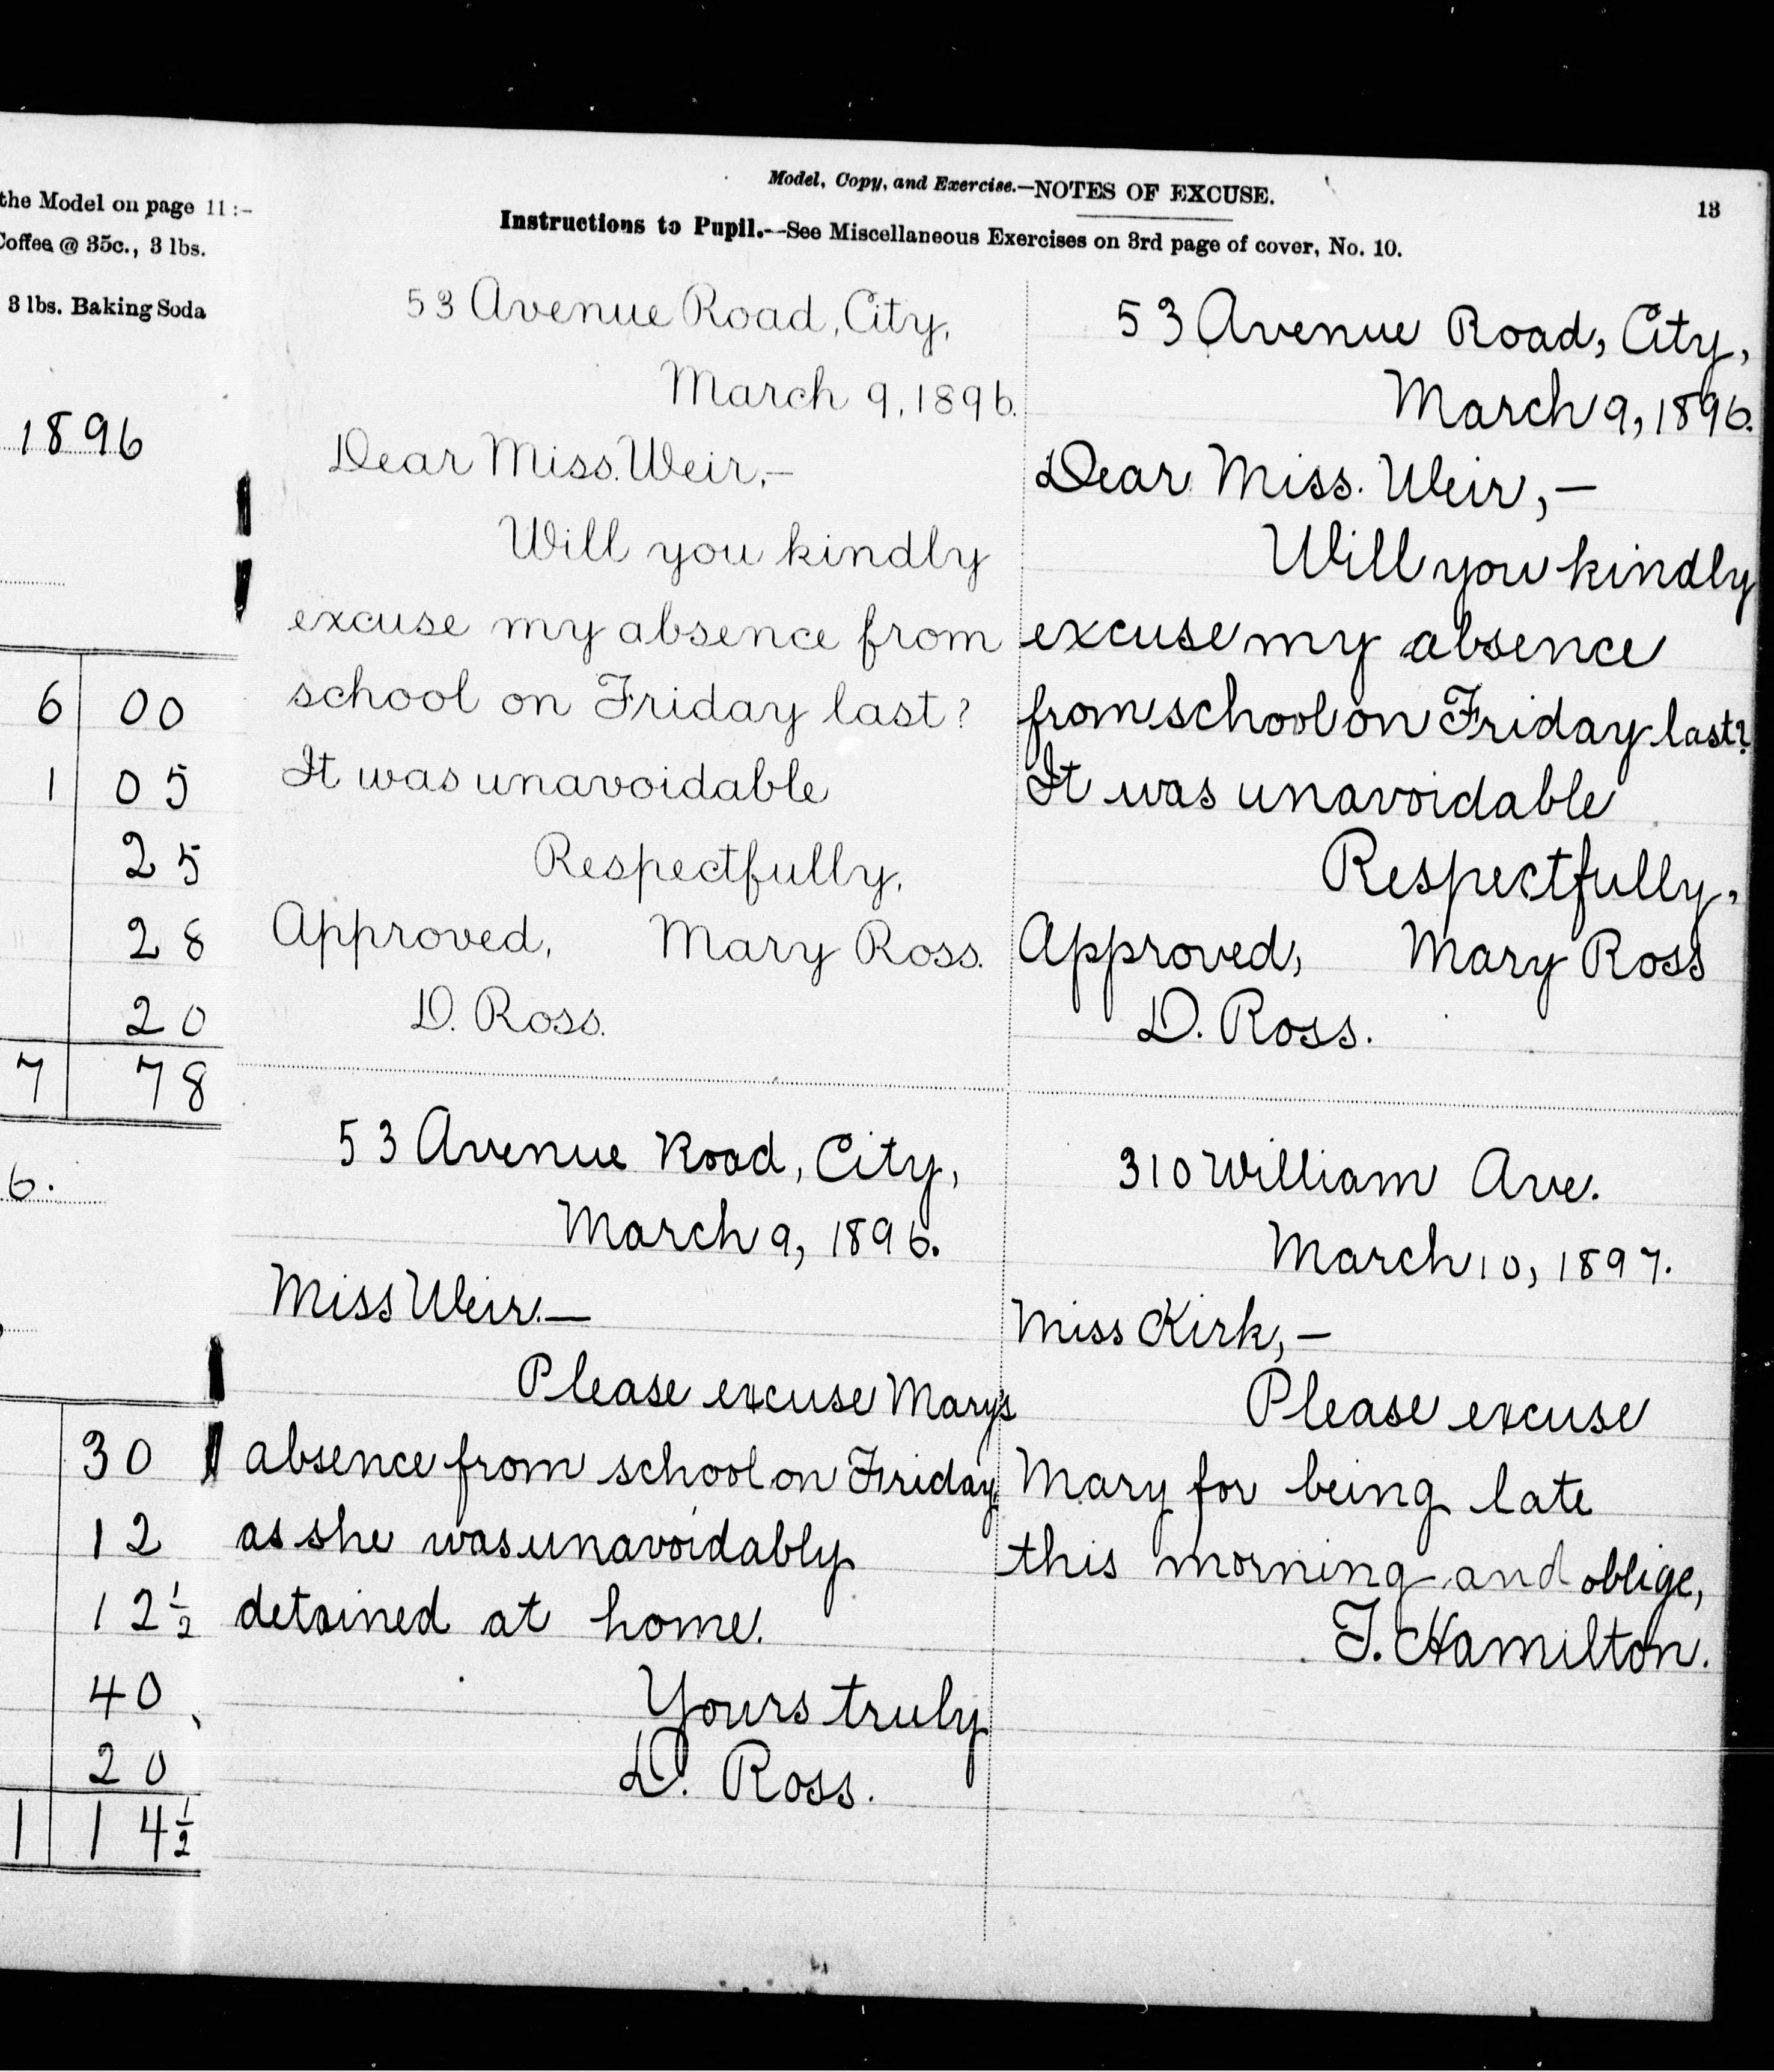 the Model on page 11:-
Coffee @ 35c., 3 lbs.
3 lbs. Baking Soda
1896
6 00
1 05
25
28
20
7 78
6.
30
12
12½
40
20
1 14½
Model, Copy, and Exercise.—NOTES OF EXCUSE.
13
Instructions to Pupil.--See Miscellaneous Exercises on 3rd page of cover, No. 10.
53 Avenue Road, City,
March 9, 1896.
Dear Miss. Weir,-
Will you kindly
excuse my absence from
school on Friday last?
It was unavoidable
Respectfully,
Approved, Mary Ross.
D. Ross.
53 Avenue Road, City,
March 9, 1896.
Dear Miss. Weir,—
Will you kindly
excuse my absence
from school on Friday last?
It was unavoidable
Respectfully,
Approved, Mary Ross
D. Ross.
53 Avenue Road, City,
March 9, 1896.
Miss Weir.—
Please excuse Mary's
absence from school on Friday,
as she was unavoidably
detained at home.
Yours truly
D. Ross.
310 William Ave.
March 10, 1897.
Miss Kirk,-
Please excuse
Mary for being late
this morning and oblige,
T. Hamilton.